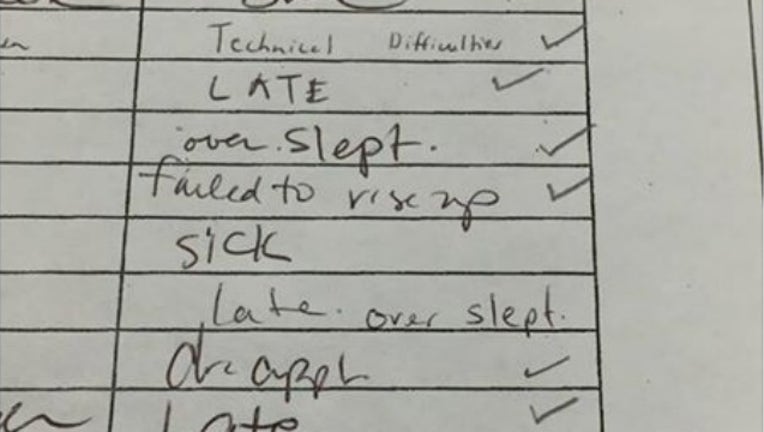 Technical Difficulties
LATE
over slept.
failed to rise up
SICK
Late. over slept.
dr. appt
Late